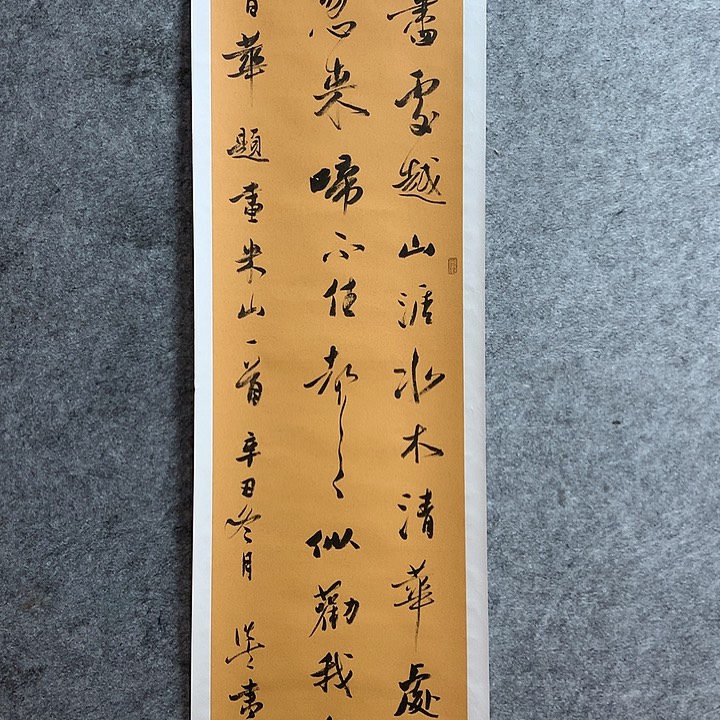 盡處越山涯水木清華處
忽來啼不住聲似勸我
華 題畫米山一首 辛丑冬月